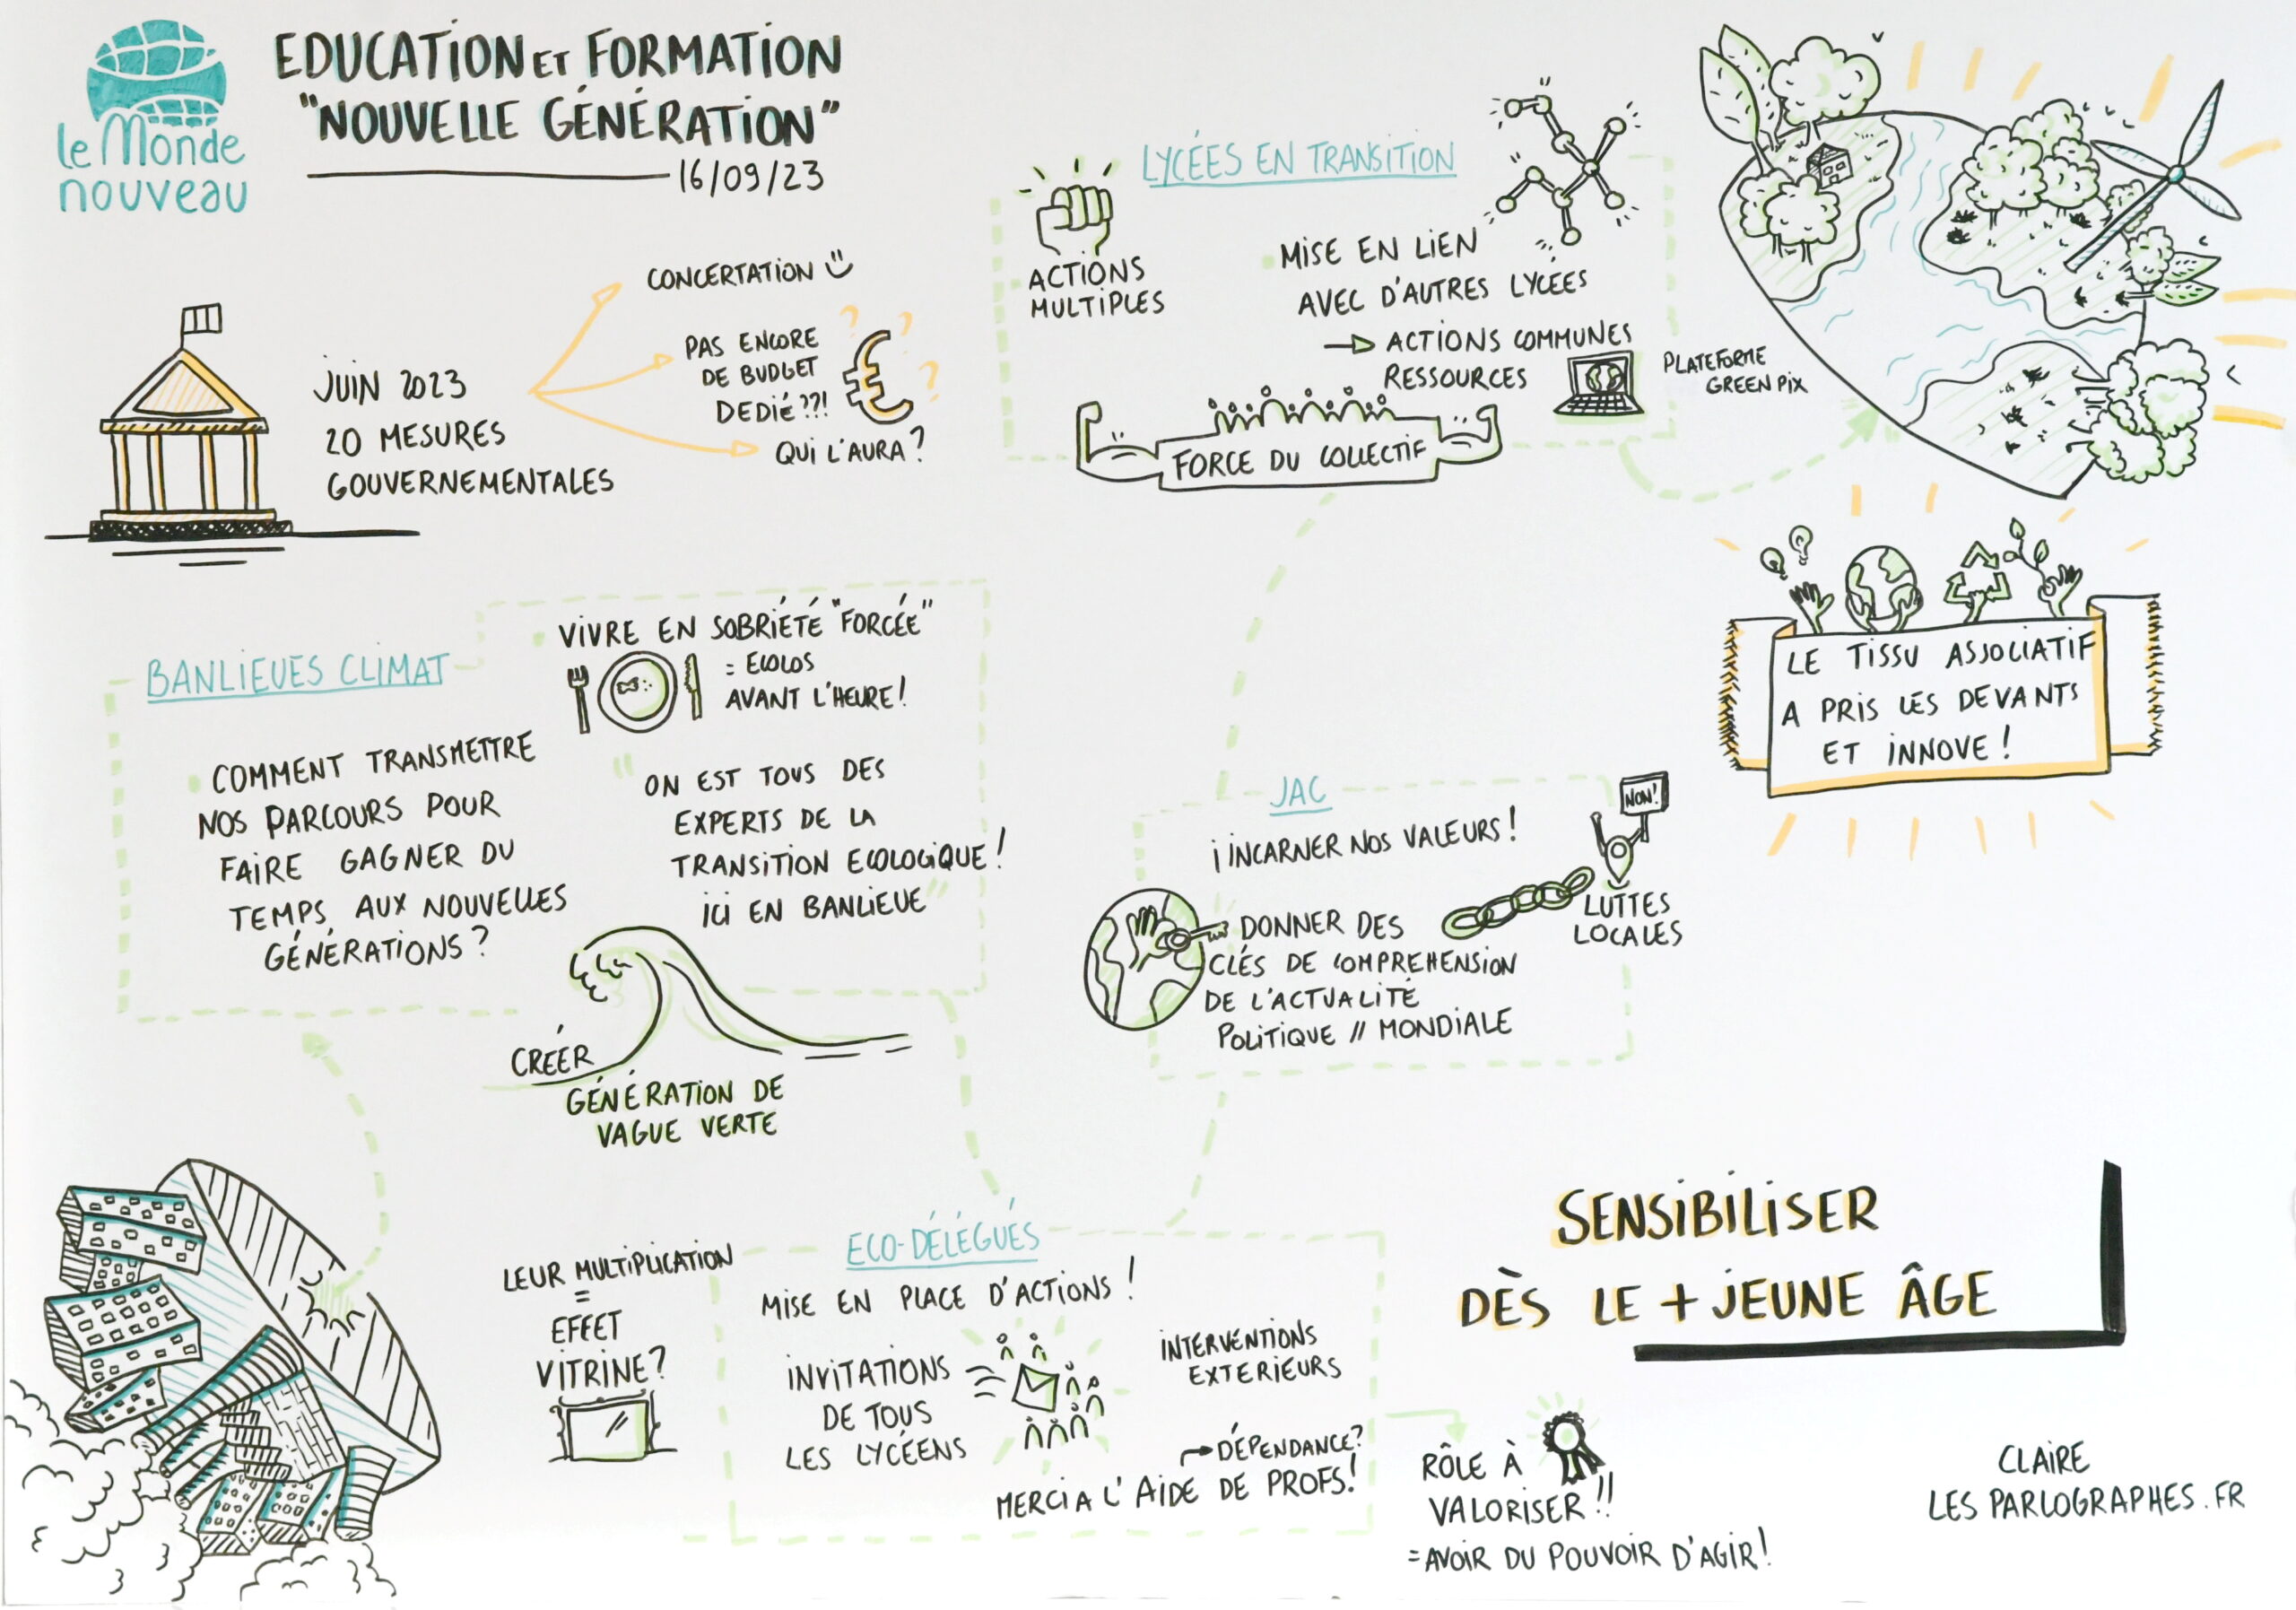 le Monde
nouveau
EDUCATION ET FORMATION
"NOUVELLE GÉNÉRATION"
16/09/23
JUIN 2023
20 MESURES
GOUVERNEMENTALES
CONCERTATION
PAS ENCORE
DE BUDGET
DEDIÉ ??!
QUI L'AURA ?
LYCÉES EN TRANSITION
ACTIONS
MULTIPLES
MISE EN LIEN
AVEC D'AUTRES LYCÉES
→ ACTIONS COMMUNES
RESSOURCES
PLATEFORME
GREEN PIX
FORCE DU COLLECTIF
LE TISSU ASSOCIATIF
A PRIS LES DEVANTS
ET INNOVE !
BANLIEUES CLIMAT
VIVRE EN SOBRIÉTÉ "FORCÉE"
= ECOLOS
AVANT L'HEURE !
COMMENT TRANSMETTRE
NOS PARCOURS POUR
FAIRE GAGNER DU
TEMPS AUX NOUVELLES
GÉNÉRATIONS ?
" ON EST TOUS DES
EXPERTS DE LA
TRANSITION ECOLOGIQUE !
ICI EN BANLIEUE "
CRÉER
GÉNÉRATION DE
VAGUE VERTE
JAC
¡ INCARNER NOS VALEURS !
NON !
LUTTES
LOCALES
DONNER DES
CLÉS DE COMPREHENSION
DE L'ACTUALITÉ
POLITIQUE // MONDIALE
LEUR MULTIPLICATION
=
EFFET
VITRINE ?
ECO-DÉLÉGUÉS
MISE EN PLACE D'ACTIONS !
INVITATIONS
DE TOUS
LES LYCÉENS
INTERVENTIONS
EXTERIEURS
→ DÉPENDANCE ?
MERCI A L'AIDE DE PROFS !
SENSIBILISER
DÈS LE + JEUNE ÂGE
RÔLE À
VALORISER !!
= AVOIR DU POUVOIR D'AGIR !
CLAIRE
LES PARLOGRAPHES.FR